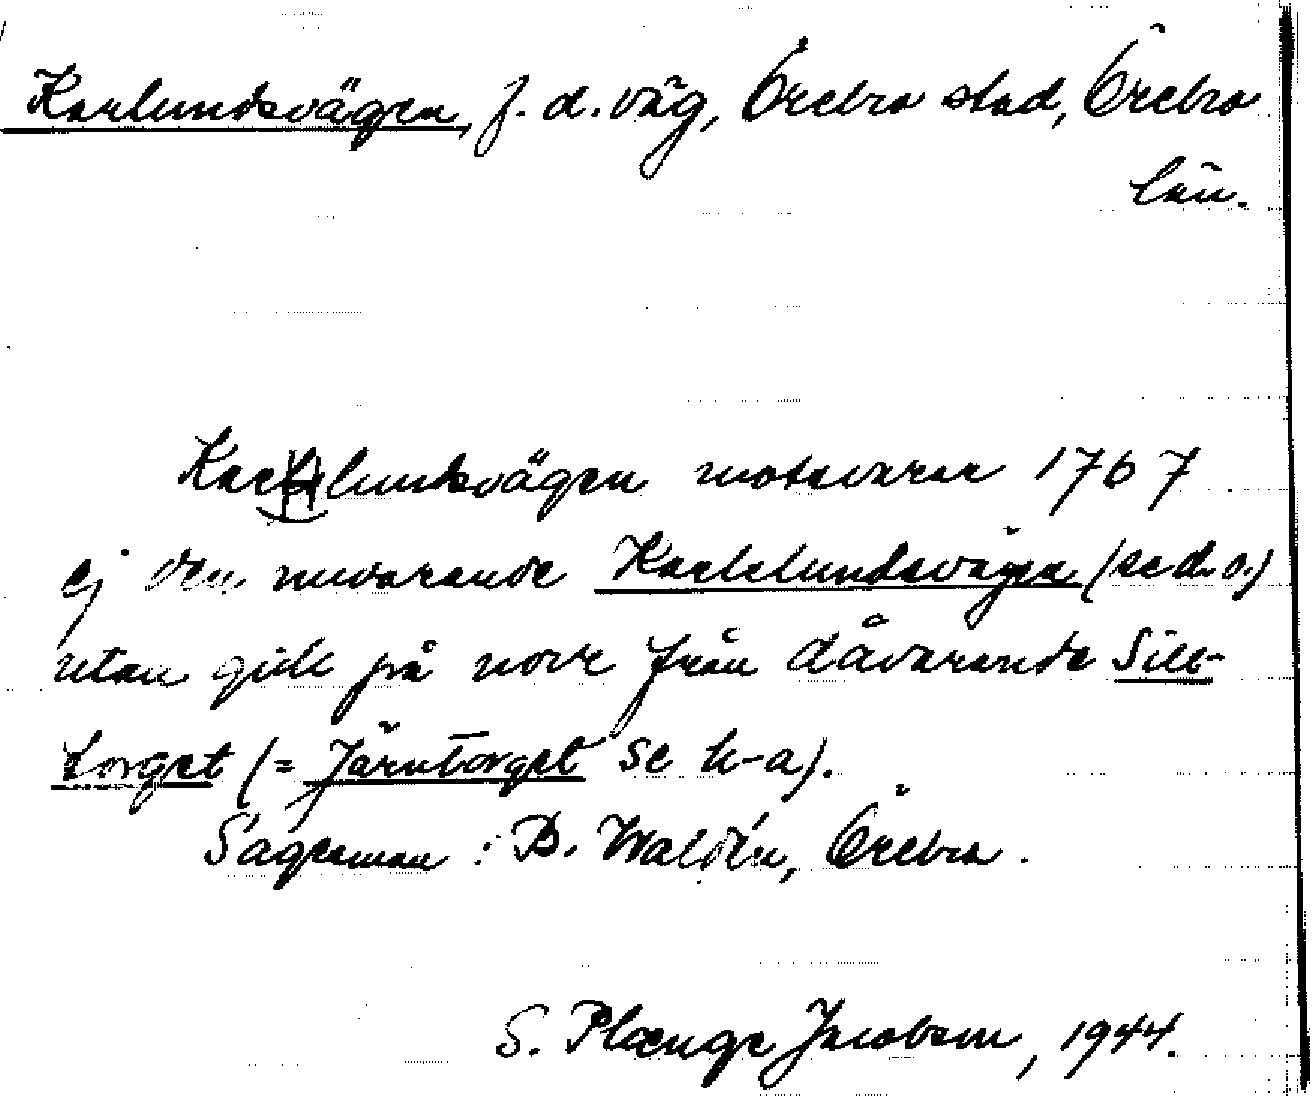 Karlundsvägen, f. d. väg, Örebro stad, Örebro
län.
Karlundsvägen motsvarar 1767
ej den nuvarande Karlslundsvägen (se d. o.)
utan gick på norr från dåvarande Sill-
torget (= Järntorget se h-a).
Sagesman: B. Waldén, Örebro.
S. Plænge Jacobson, 1944.